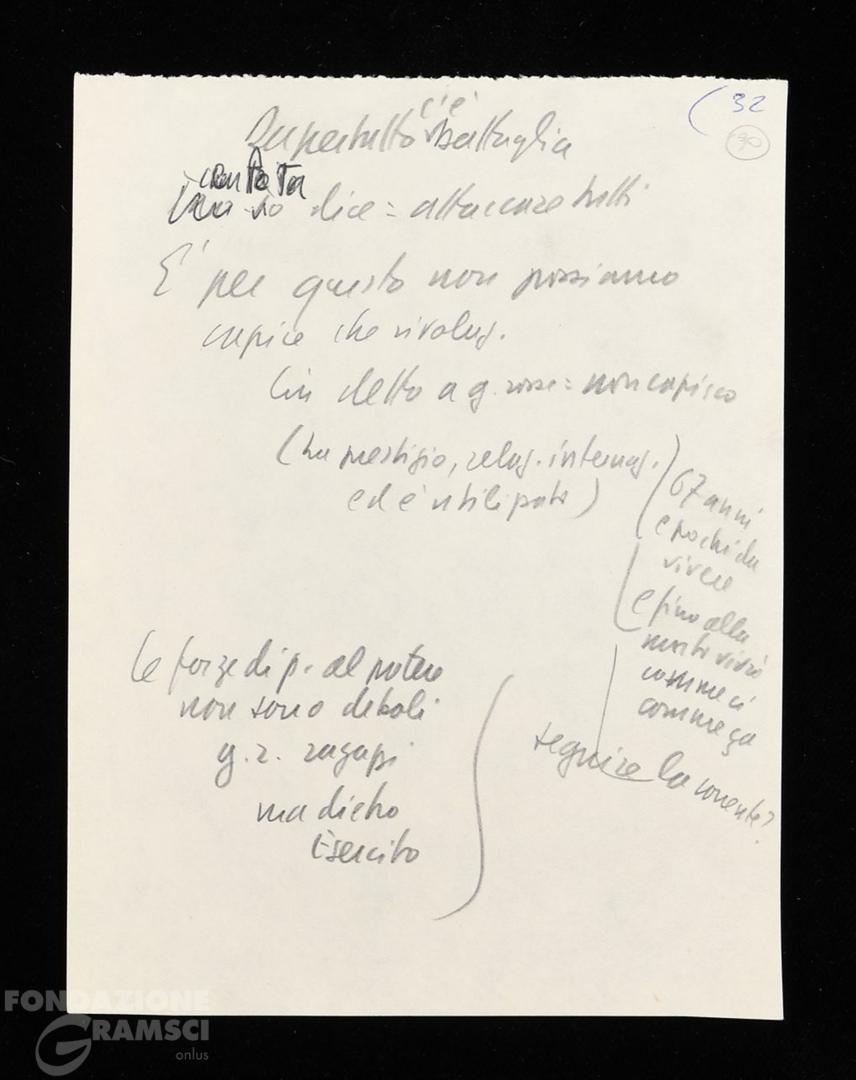 ( 32
30
Dappertutto c'è battaglia
cantata
dice = attaccare tutti
E' per questo non possiamo
capire che rivoluz.
Lin detto a g. rosse = non capisco
(ha prestigio, relaz. internaz.
ed è utilizzato)
67 anni
e pochi da
vivere
e fino alla
morte vivrò
comme ci
comme ça
seguire la corrente?
Le forze di p. al potere
non sono deboli
g. r. ragazzi
ma dietro
Esercito
FONDAZIONE
GRAMSCI
onlus